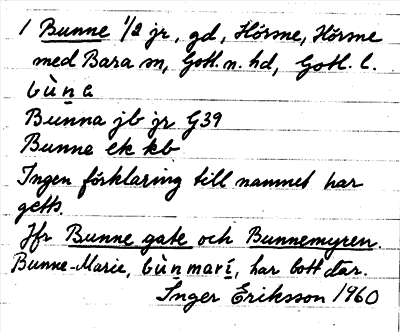 1 Bunne 1/2 jr, gd, Hörsne, Hörsne
med Bara sn, Gotl. n. hd, Gotl. l.
bùn a
Bunna jb jr G39
Bunne ek kb
Ingen förklaring till namnet har
getts.
Jfr Bunne gate och Bunnemyren.
Bunne-Marie, bùn marí, har bott där.
Inger Eriksson 1960